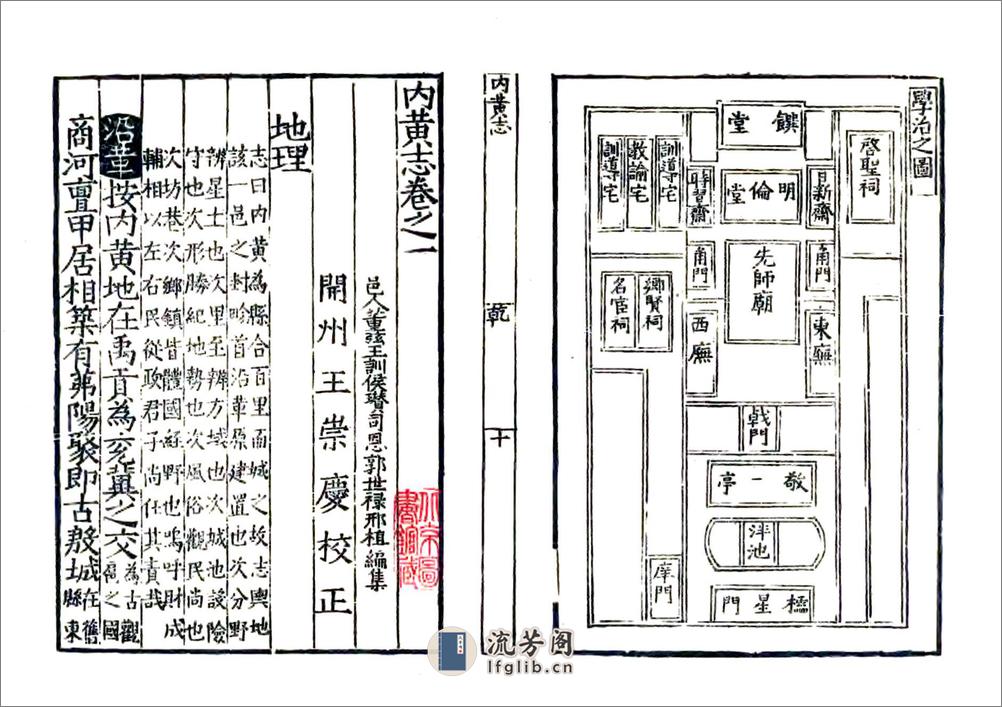 學治之圖
啓聖祠
饌堂
明倫堂
日新齋
時習齋
訓導宅
教諭宅
訓導宅
角門
角門
先師廟
鄉賢祠
名宦祠
東廡
西廡
戟門
敬一亭
泮池
庠門
櫺星門
内黄志
乾
十
内黄志卷之一
邑人董弦王訓侯瓚司恩郭世禄邢植編集
開州王崇慶校正
地理
志曰内黄為縣合百里而城之故志輿地
該一邑之封畛首沿革原建置也次分野
辨星土也次里至辨方域也次城池設險
守也次形勝紀地勢也次風俗觀民尚也
次坊巷次鄉鎮皆體國經野也嗚呼財成
輔相以左右民從政君子尚任其責哉
沿革按内黄地在禹貢為兖冀之交為古觀扈之國
商河亶甲居相築有茀陽聚即古殷城在舊縣東
北京圖書館藏
流芳阁
lfglib.cn